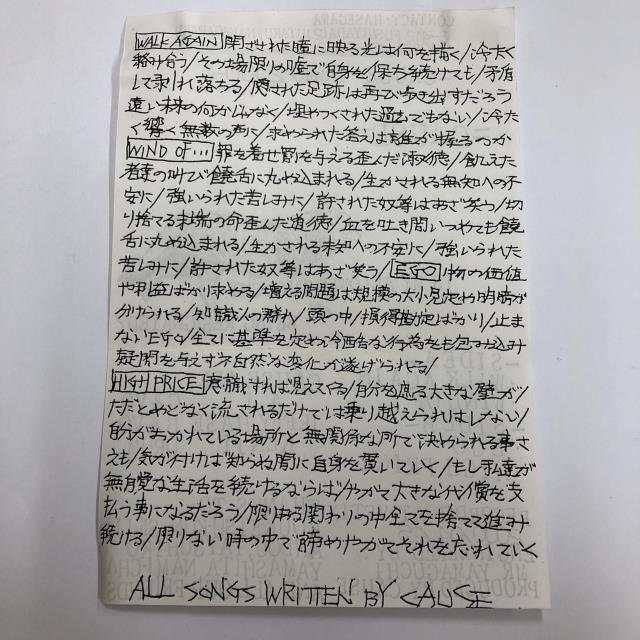 WALK AGAIN 閉ざされた瞳に映る光は何を描く/冷たく
絡み合う/その場限りの嘘で自身を/保ち続けても/矛盾
して剥れ落ちる/閉された足跡は再び歩き出すだろう
遠い未来の何かじゃなく/埋めつくされた過去でもない/冷た
く響く無数の声に/求められた答えは誰が握るのか
WIND OF... 罪を着せ罰を与える歪んだ道徳/飢えた
者達の叫び饒舌に丸め込まれる/生かされる無知への不
安に/強いられた苦しみに/許された奴等はあざ笑う/切
り捨てる末端の命歪んだ道徳/血を吐き問いつめても饒
舌に丸め込まれる/生かされる未知への不安に/強いられた
苦しみに/許された奴等はあざ笑う/ EGO 物の価値
や利益ばかり求める/増える問題は規模の大小見定め明暗が
分けられる/知識人の群れ/頭の中/損得勘定ばかり/止ま
ないEGO/全てに基準を定め冷酷な行為をも包み込み
疑問を与えず不自然な変化が遂げられる/
HIGH PRICE 意識すれば見えてくる/自分を遮る大きな壁が/
ただとめどなく流されるだけでは乗り越えられはしない/
自分がおかれている場所と無関係な所で決められる事さ
えも/気が付けば知らぬ間に自身を貫いていく/もし私達が
無自覚な生活を続けるならば/やがて大きな代償を支
払う事になるだろう/限りある関わりの中全てを捨てて進み
続ける/限りない時の中で諦めやがてそれを忘れていく
ALL SONGS WRITTEN BY CAUSE